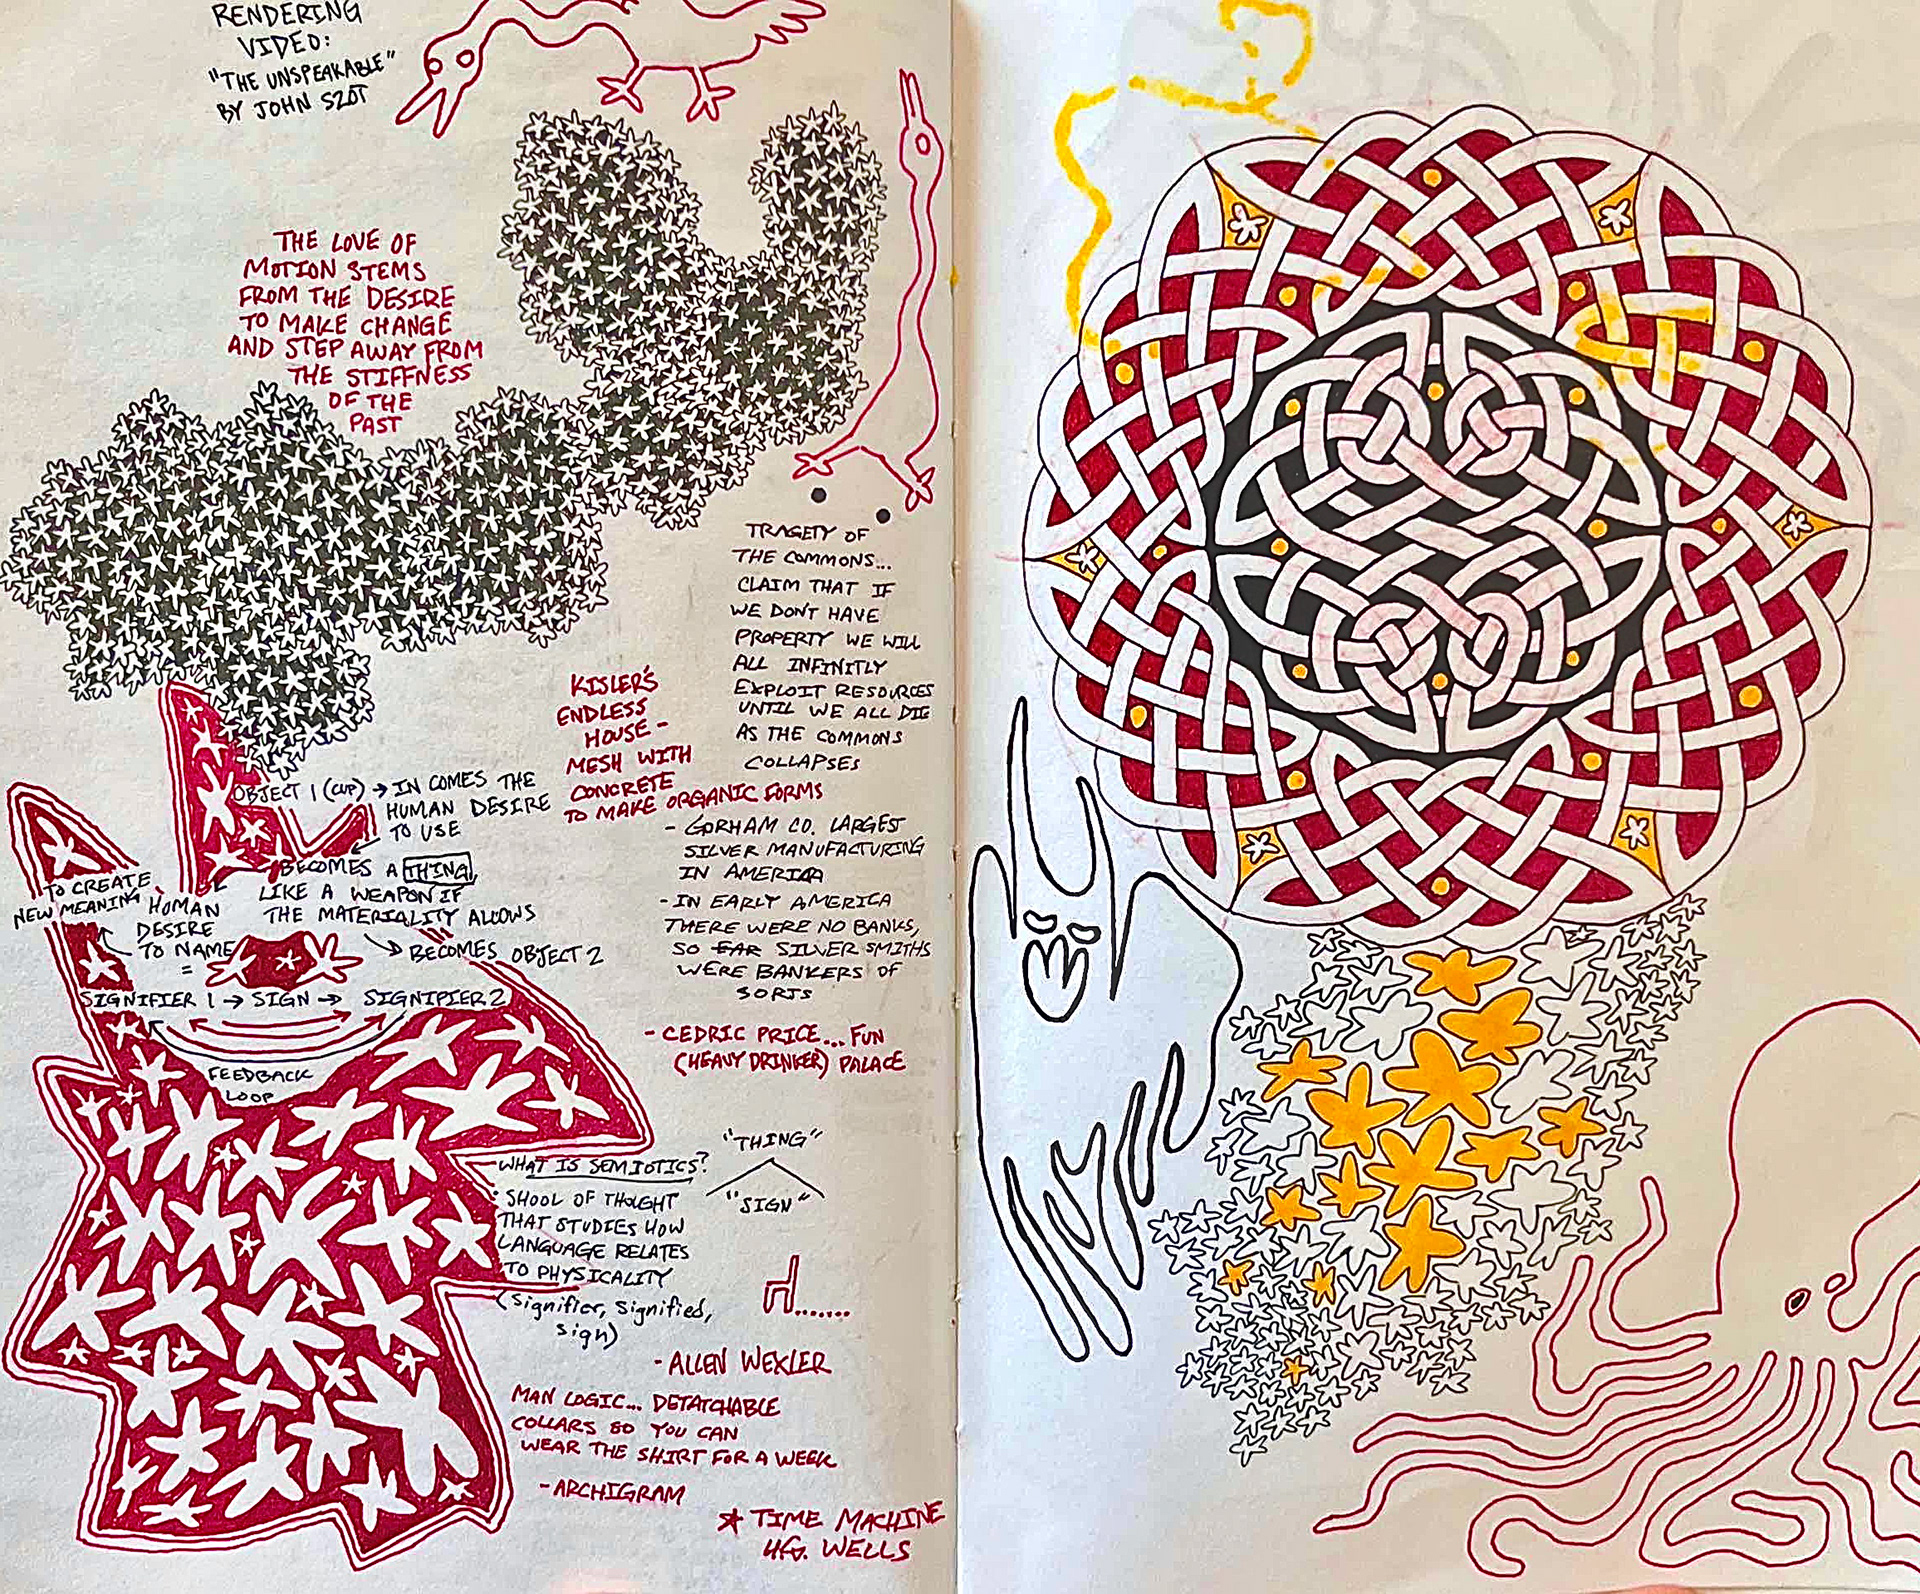 RENDERING
VIDEO:
"THE UNSPEAKABLE"
BY JOHN SZOT
THE LOVE OF
MOTION STEMS
FROM THE DESIRE
TO MAKE CHANGE
AND STEP AWAY FROM
THE STIFFNESS
OF THE
PAST
TRAGETY OF
THE COMMONS...
CLAIM THAT IF
WE DON'T HAVE
PROPERTY WE WILL
ALL INFINITLY
EXPLOIT RESOURCES
UNTIL WE ALL DIE
AS THE COMMONS
COLLAPSES
KISLER'S
ENDLESS
HOUSE -
MESH WITH
CONCRETE
TO MAKE ORGANIC FORMS
- GORHAM CO. LARGEST
SILVER MANUFACTURING
IN AMERICA
- IN EARLY AMERICA
THERE WERE NO BANKS,
SO FAR SILVER SMITHS
WERE BANKERS OF
SORTS
- CEDRIC PRICE... FUN
(HEAVY DRINKER) PALACE
OBJECT 1 (CUP) → IN COMES THE
HUMAN DESIRE
TO USE
BECOMES A THING,
LIKE A WEAPON IF
THE MATERIALITY ALLOWS
→ BECOMES OBJECT 2
TO CREATE
NEW MEANING
HUMAN
DESIRE
TO NAME
=
SIGNIFIER 1 → SIGN → SIGNIFIER 2
FEEDBACK
LOOP
"THING"
"SIGN"
WHAT IS SEMIOTICS?
· SHOOL OF THOUGHT
THAT STUDIES HOW
LANGUAGE RELATES
TO PHYSICALITY
(signifier, signified,
sign)
- ALLEN WEXLER
MAN LOGIC... DETATCHABLE
COLLARS SO YOU CAN
WEAR THE SHIRT FOR A WEEK
- ARCHIGRAM
* TIME MACHINE
H.G. WELLS